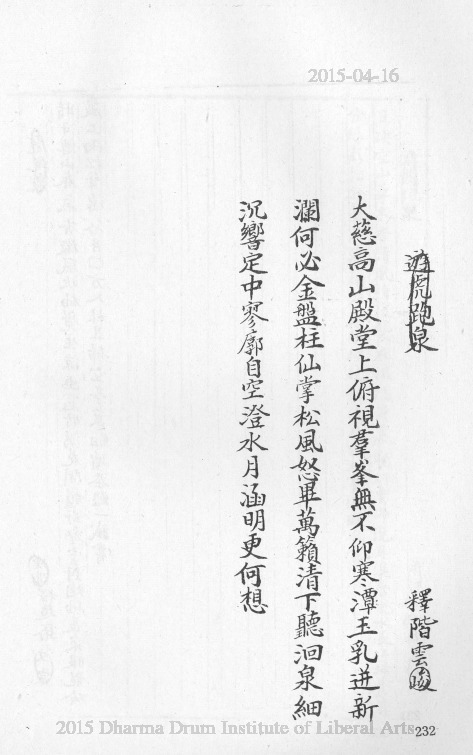 2015-04-16
遊虎跑泉
釋階雲峻
大慈高山殿堂上俯視羣峯無不仰寒潭玉乳迸新
瀾何必金盤柱仙掌松風怒畢萬籟清下聽洄泉細
沉響定中寥廓自空澄水月涵明更何想
2015 Dharma Drum Institute of Liberal Arts
232